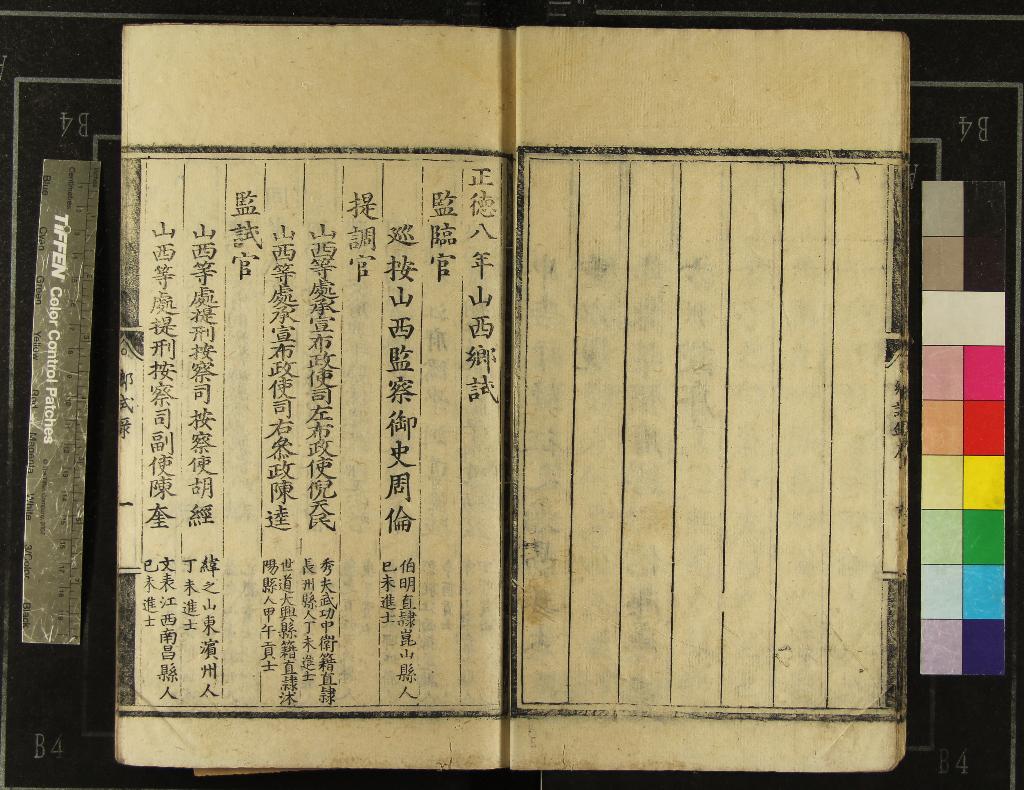 正德八年山西鄉試
監臨官
巡按山西監察御史周倫
伯明直隸崑山縣人
己未進士
提調官
山西等處承宣布政使司左布政使倪天民
秀夫武功中衛籍直隸
長洲縣人丁未進士
山西等處承宣布政使司右叅政陳逵
世道大興縣籍直隸沭
陽縣人甲午貢士
監試官
山西等處提刑按察司按察使胡經
緯之山東濱州人
丁未進士
山西等處提刑按察司副使陳奎
文表江西南昌縣人
己未進士
鄉試錄
一
B4
B4
B4
B4
TIFFEN Color Control Patches
Centimetres
Blue
Cyan
Green
Yellow
Red
Magenta
White
3/Color
Black